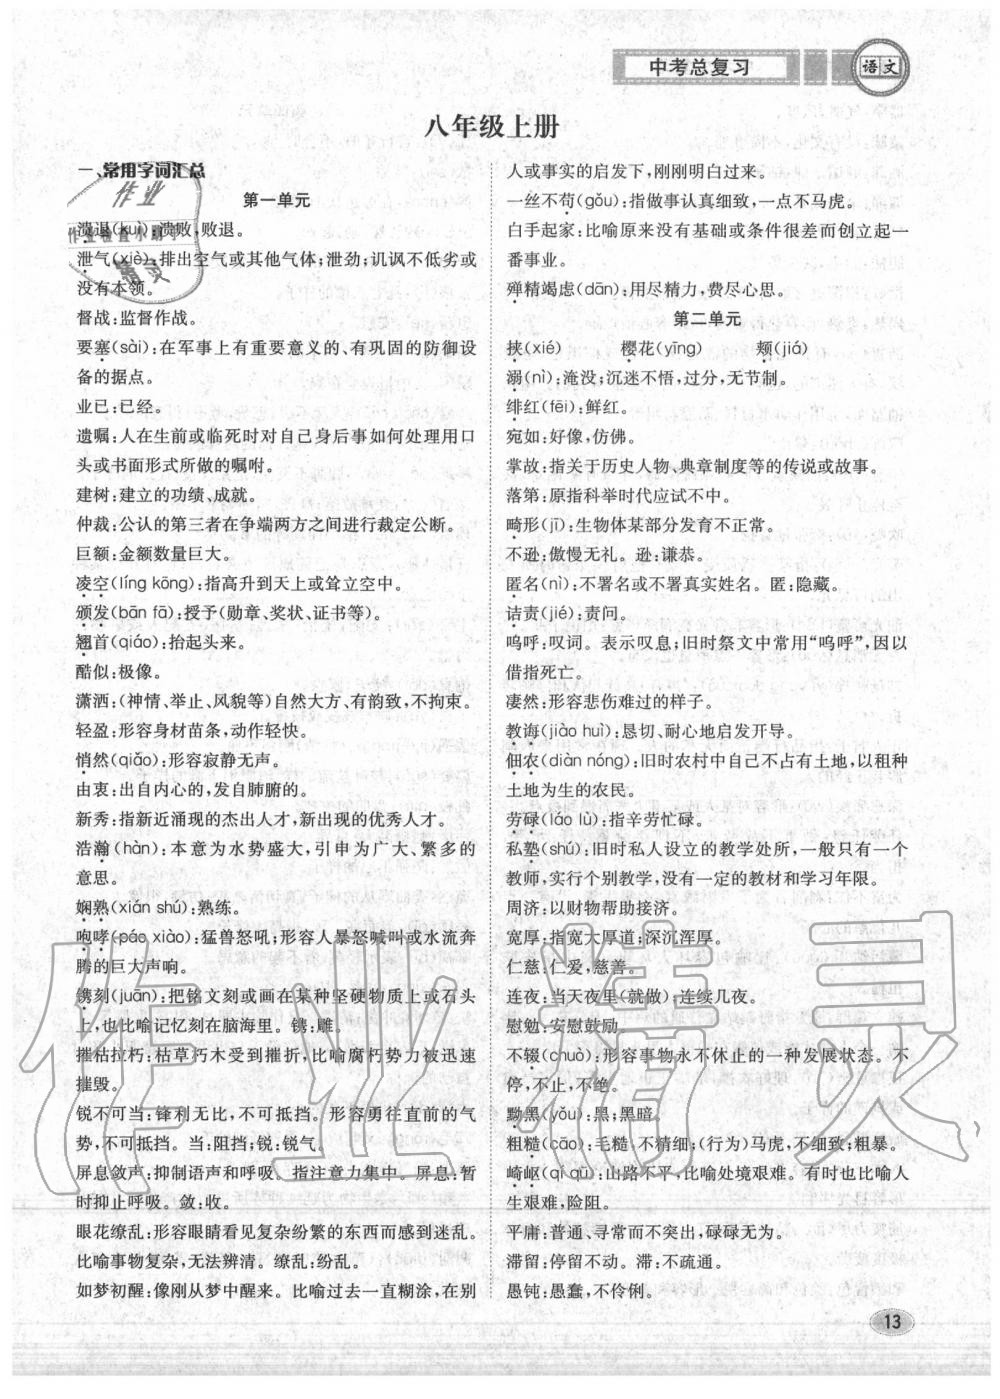 中考总复习
语文
八年级上册
一、常用字词汇总
第一单元
溃退(kuì):溃败,败退。
泄气(xiè):排出空气或其他气体;泄劲;讥讽不低劣或
没有本领。
督战:监督作战。
要塞(sài):在军事上有重要意义的、有巩固的防御设
备的据点。
业已:已经。
遗嘱:人在生前或临死时对自己身后事如何处理用口
头或书面形式所做的嘱咐。
建树:建立的功绩、成就。
仲裁:公认的第三者在争端两方之间进行裁定公断。
巨额:金额数量巨大。
凌空(líng kōng):指高升到天上或耸立空中。
颁发(bān fā):授予(勋章、奖状、证书等)。
翘首(qiáo):抬起头来。
酷似:极像。
潇洒:(神情、举止、风貌等)自然大方、有韵致,不拘束。
轻盈:形容身材苗条,动作轻快。
悄然(qiǎo):形容寂静无声。
由衷:出自内心的,发自肺腑的。
新秀:指新近涌现的杰出人才,新出现的优秀人才。
浩瀚(hàn):本意为水势盛大,引申为广大、繁多的
意思。
娴熟(xián shú):熟练。
咆哮(páo xiào):猛兽怒吼;形容人暴怒喊叫或水流奔
腾的巨大声响。
镌刻(juān):把铭文刻或画在某种坚硬物质或石头
上,也比喻记忆刻在脑海里。镌:雕。
摧枯拉朽:枯草朽木受到摧折,比喻腐朽势力被迅速
摧毁。
锐不可当:锋利无比,不可抵挡。形容勇往直前的气
势,不可抵挡。当:阻挡;锐:锐气。
屏息敛声:抑制语声和呼吸。指注意力集中。屏息:暂
时抑止呼吸。敛:收。
眼花缭乱:形容眼睛看见复杂纷繁的东西而感到迷乱。
比喻事物复杂,无法辨清。缭乱:纷乱。
如梦初醒:像刚从梦中醒来。比喻过去一直糊涂,在别
人或事实的启发下,刚刚明白过来。
一丝不苟(gǒu):指做事认真细致,一点不马虎。
白手起家:比喻原来没有基础或条件很差而创立起一
番事业。
殚精竭虑(dān):用尽精力,费尽心思。
第二单元
挟(xié) 樱花(yīng) 颊(jiá)
溺(nì):淹没;沉迷不悟,过分,无节制。
绯红(fēi):鲜红。
宛如:好像,仿佛。
掌故:指关于历史人物、典章制度等的传说或故事。
落第:原指科举时代应试不中。
畸形(jī):生物体某部分发育不正常。
不逊:傲慢无礼。逊:谦恭。
匿名(nì):不署名或不署真实姓名。匿:隐藏。
诘责(jié):责问。
呜呼:叹词。表示叹息;旧时祭文中常用“呜呼”,因以
借指死亡。
凄然:形容悲伤难过的样子。
教诲(jiào huì):恳切、耐心地启发开导。
佃农(diàn nóng):旧时农村中自己不占有土地,以租种
土地为生的农民。
劳碌(láo lù):指辛劳忙碌。
私塾(shú):旧时私人设立的教学处所,一般只有一个
教师,实行个别教学,没有一定的教材和学习年限。
周济:以财物帮助接济。
宽厚:指宽大厚道;深沉浑厚。
仁慈:仁爱,慈善。
连夜:当天夜里(就做);连续几夜。
慰勉:安慰鼓励。
不辍(chuò):形容事物永不休止的一种发展状态。不
停,不止,不绝。
黝黑(yǒu):黑;黑暗。
粗糙(cāo):毛糙,不精细;(行为)马虎,不细致;粗暴。
崎岖(qí qū):山路不平,比喻处境艰难。有时也比喻人
生艰难,险阻。
平庸:普通、寻常而不突出,碌碌无为。
滞留:停留不动。滞:不流通。
愚钝:愚蠢,不伶俐。
13
作业
作业检查小助手
精灵
作业精灵